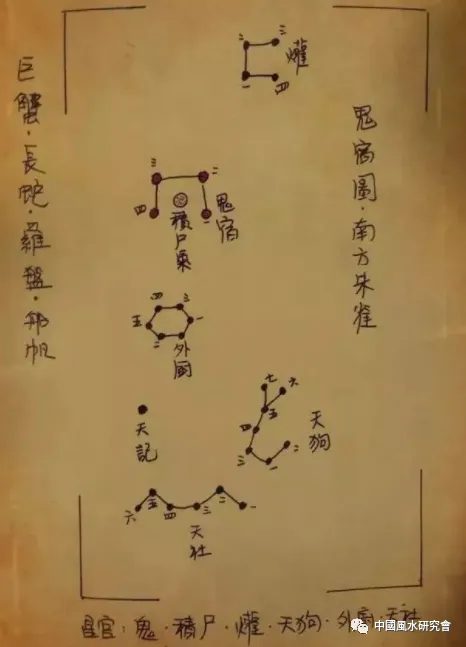 鬼宿圖·南方朱雀
巨蟹·長蛇·羅盤·船帆
二 三
一 四
爟
三 二
四 一
鬼宿
積尸氣
四 三
五 一
二
外厨
七 六
五
四
三 一 二
天狗
天記
五 二
六 四 三 一
天社
星官：鬼·積尸·爟·天狗·外 天社
中國風水研究會